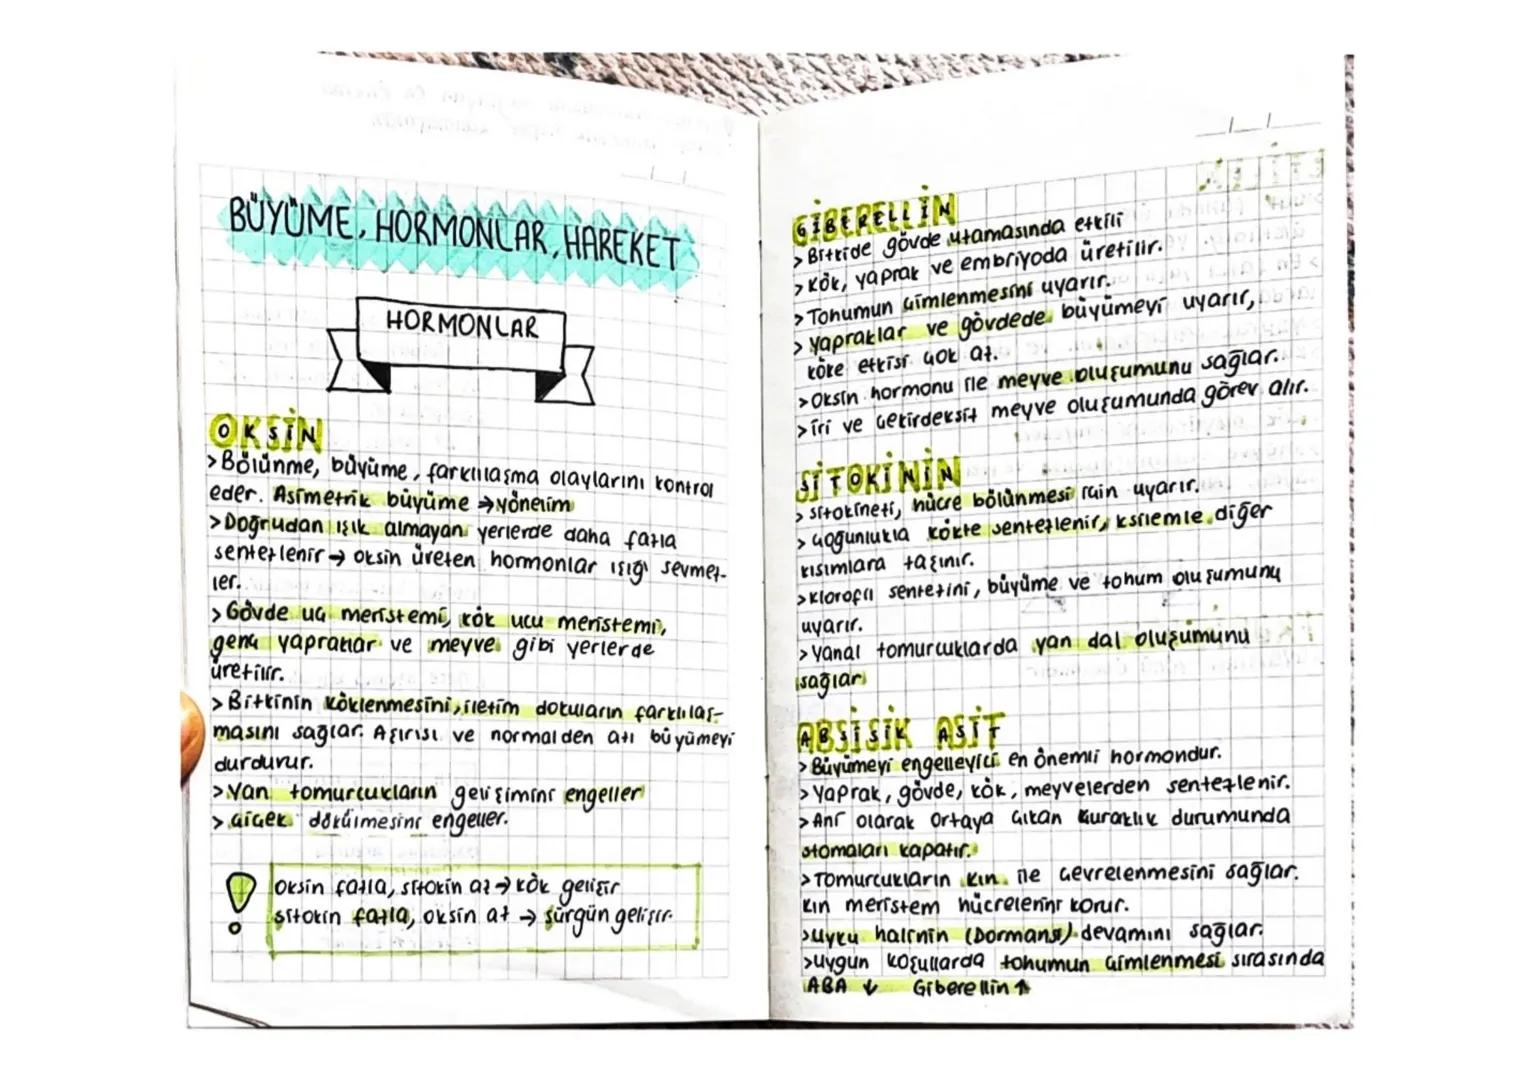 BÜYÜME, HORMONLAR, HAREKET
HORMONLAR
OKSİN
>Bölünme, büyüme, farklılaşma olaylarını kontrol
eder. Asimetrik büyüme →yönelim
>Doğrudan ışık almayan yerlerde daha fazla
sentezlenir→ oksin üreten hormonlar ışığı sevmez-
ler.
>Gövde uç meristemi, kök ucu meristemi,
genç yapraklar ve meyve gibi yerlerde
üretilir.
>Bitkinin köklenmesini, iletim dokuların farklılaş-
masını sağlar. Aşırısı ve normalden azı büyümeyi
durdurur.
>Yan tomurcukların gelişimini engeller
>çiçek dökülmesini engeller.
! oksin fazla, sitokin az→ kök gelişir
sitokin fazla, oksin az → sürgün gelişir.
GİBERELLİN
>Bitkide gövde uzamasında etkili
>kök, yaprak ve embriyoda üretilir.
>Tohumun çimlenmesini uyarır.
>Yapraklar ve gövdede büyümeyi uyarır,
köke etkisi çok az.
>Oksin hormonu ile meyve oluşumunu sağlar.
>iri ve çekirdeksiz meyve oluşumunda görev alır.
SİTOKİNİN
>sitokineti, hücre bölünmesi için uyarır.
>çoğunlukla kökte sentezlenir, ksilemle diğer
kısımlara taşınır.
>klorofil sentezini, büyüme ve tohum oluşumunu
uyarır.
>Yanal tomurcuklarda yan dal oluşumunu
sağlar
ABSİSİK ASİT
>Büyümeyi engelleyici en önemli hormondur.
>Yaprak, gövde, kök, meyvelerden sentezlenir.
>Ani olarak ortaya çıkan kuraklık durumunda
stomaları kapatır.
>Tomurcukların kın ile çevrelenmesini sağlar.
kın meristem hücrelerini korur.
>uyku halinin (Dormansi) devamını sağlar.
>uygun koşullarda tohumun çimlenmesi sırasında
ABA ↓ Giberellin ↑